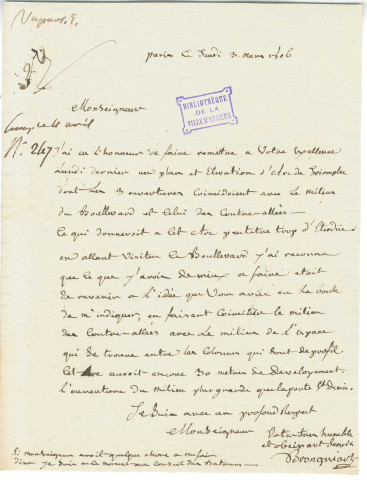 paris Ce Jeudi 3. Mars 1806
BIBLIOTHÈQUE
DE LA
VILLE D'ANGERS
Monseigneur
avril
No. 247
J'ai eu l'honneur de faire remettre a Votre Excellence
Lundi dernier un plan et Elevation d'Arc de Triomphe
dont les 3 ouvertures Coincidoient avec le milieu
du Boullevard et Celui des Contre-allées
Ce qui donneroit a Cet Arc peutetre trop d'Etendue
en allant Visiter Ce Boullevard J'ai reconnu
que Ce que J'avois de mieux a faire etoit
de revenir a L'idée que Vous aviez eu La bonté
de m'indiquer, en faisant Coincider le milieu
des Contre-allées avec Le milieu de L'espace
qui Se trouve entre les Colonnes qui Sont de profil
Cet Arc auroit encore 30 metres de Developement.
L'ouverture du milieu plus grande que la porte St Denis.
Je Suis avec un profond Respect
Monseigneur
Votre tres humble
et obeissant Serviteur
Brongniart
Si monseigneur avoit quelque chose a me faire
dire Je Suis au Conseil des Batimens